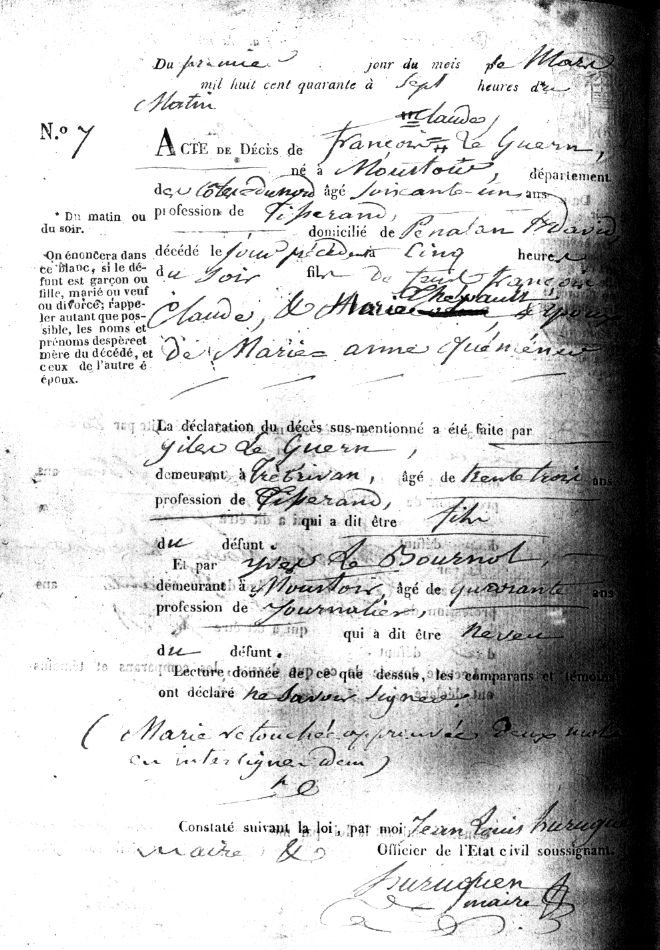 Du premier jour du mois de Mars
mil huit cent quarante à Sept heures du*
Matin
N.º 7
Claude,
ACTE DE DÉCÈS de François Le Guern,
né à Moustoir, département
des Côtes du nord âgé Soixante-un ans
profession de Tisserand,
domicilié de Penalan
décédé le jour précédent à Cinq heures
du Soir fils de feu François
Claude, & Marie Epoux
de Marie-anne Quéméneur
* Du matin ou
du soir.
On énoncera dans
ce blanc, si le dé-
funt est garçon ou
fille, marié ou veuf
ou divorcé; rappe-
ler autant que pos-
sible, les noms et
prénoms des père et
mère du décédé, et
ceux de l'autre é
époux.
La déclaration du décès sus-mentionné a été faite par
Giles Le Guern,
demeurant à Trébrivan, âgé de trente trois ans
profession de Tisserand,
qui a dit être fils
du défunt.
Et par Yves Le Bournot,
demeurant à Moustoir, âgé de quarante ans
profession de Journalier,
qui à dit être Neveu
du défunt.
Lecture donnée de ce que dessus, les comparans et témoins
ont déclaré ne Savoir Signer.
(Marie retouché approuvée deux mots
en intersigne idem)
Constaté suivant la loi, par moi Jean Louis Huruguen
maire & Officier de l'Etat civil soussignant.
Huruguen
maire